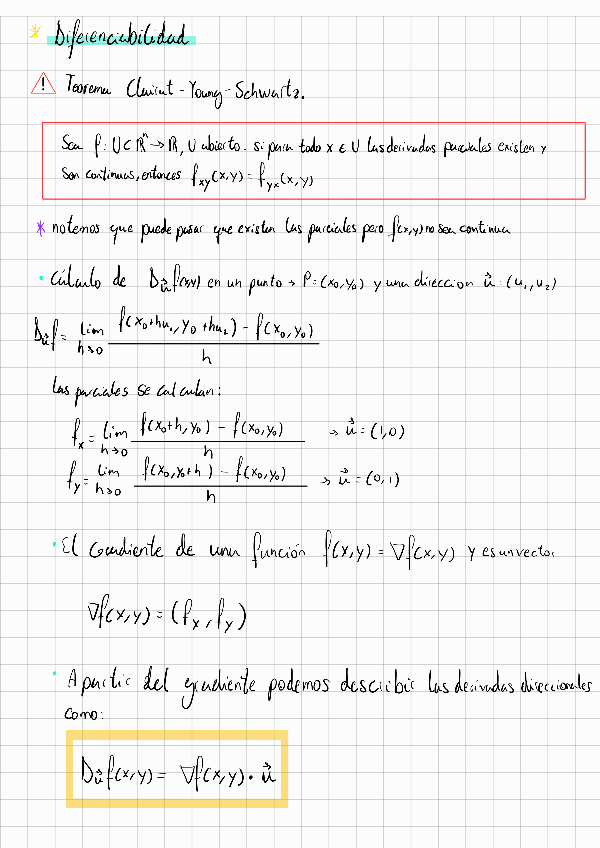 * Diferenciabilidad
! Teorema Clairut - Young - Schwartz.
Sea f: U ⊂ ℝⁿ → ℝ, U abierto. si para todo x ∈ U las derivadas parciales existen y
son continuas, entonces f_xy(x,y) = f_yx(x,y)
* notemos que puede pasar que existan las parciales pero f(x,y) no sea continua
• Cálculo de D_u⃗ f(x,y) en un punto → P=(x₀,y₀) y una direccion u⃗ = (u₁,u₂)
D_u⃗ f = lim h→0 (f(x₀+hu₁, y₀+hu₂) - f(x₀,y₀)) / h
las parciales se calculan:
f_x = lim h→0 (f(x₀+h,y₀) - f(x₀,y₀)) / h → u⃗ = (1,0)
f_y = lim h→0 (f(x₀,y₀+h) - f(x₀,y₀)) / h → u⃗ = (0,1)
• El Gradiente de una función f(x,y) = ∇f(x,y) y es un vector
∇f(x,y) = (f_x, f_y)
• A partir del gradiente podemos describir las derivadas direccionales
como:
D_u⃗ f(x,y) = ∇f(x,y) • u⃗